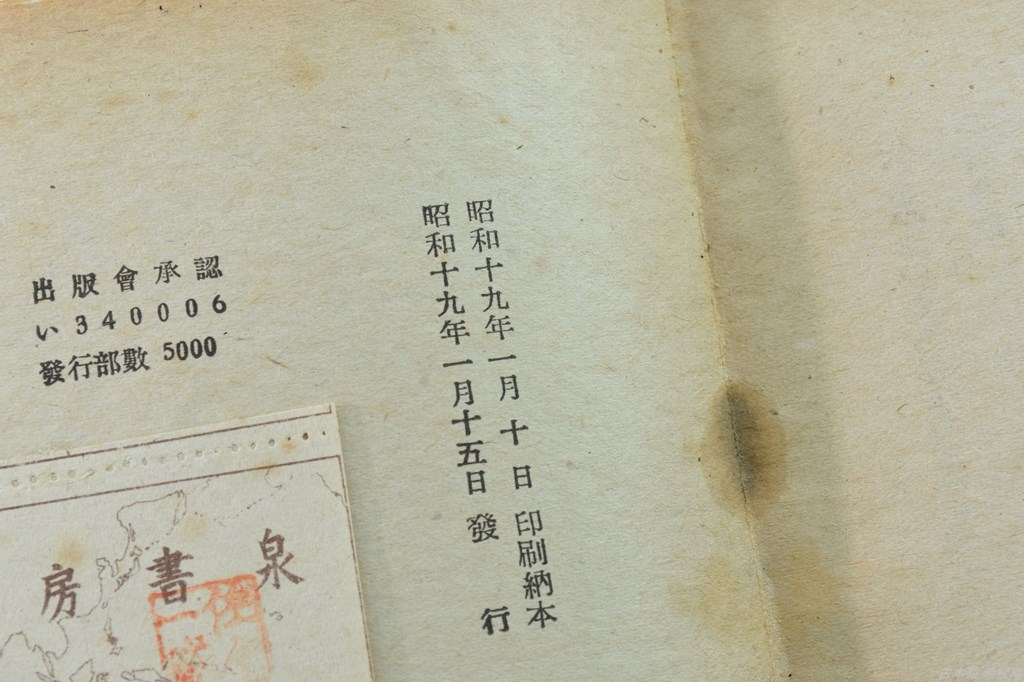 昭和十九年一月十日印刷納本
昭和十九年一月十五日發行
出版會承認
い340006
發行部數 5000
泉書房